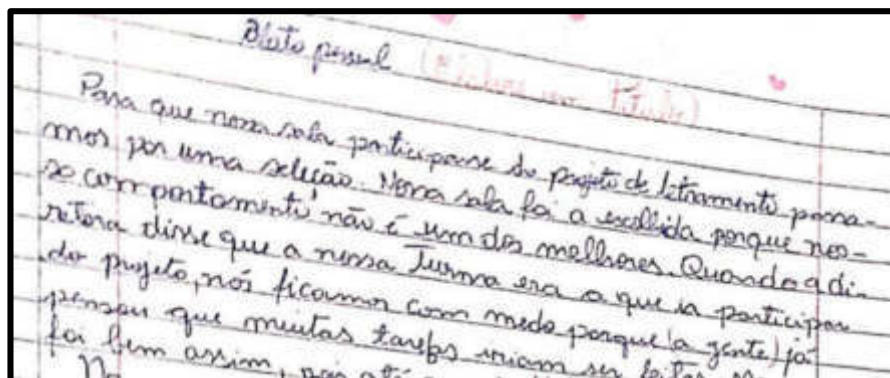 Relato pessoal (Elabore um título)
Para que nossa sala participasse do projeto de letramento passa-
mos por uma seleção. Nossa sala foi a escolhida porque nos-
so comportamento não é um dos melhores. Quando a di-
retora disse que a nossa Turma era a que ia participar
do projeto, nós ficamos com medo porque (a gente) já
pensou que muitas tarefas iriam ser feitas
foi bem assim, pois até